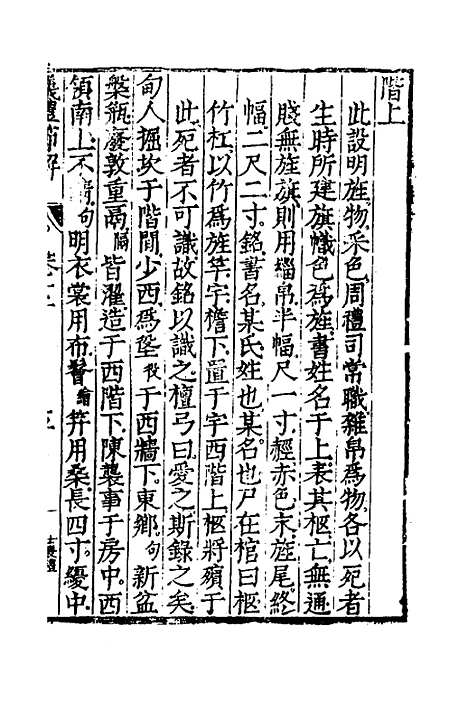 階上
此設明旌物采色周禮司常職雜帛為物各以死者
生時所建旗幟色為旌書姓名于上表其柩亡無通
賤無旌旗則用緇帛半幅尺一寸赬赤色末旌尾終
幅二尺二寸銘書名某氏姓也某名也尸在棺曰柩
竹杠以竹為旌竿宇檐下置于宇西階上柩將殯于
此死者不可識故銘以識之檀弓曰愛之斯錄之矣
甸人掘坎于階間少西為垼役于西牆下東鄉句新盆
槃瓶廢敦重鬲隔皆濯造于西階下陳襲事于房中西
領南上不 句明衣裳用布鬠 笄用桑長四寸纋中
儀禮節解
士喪禮